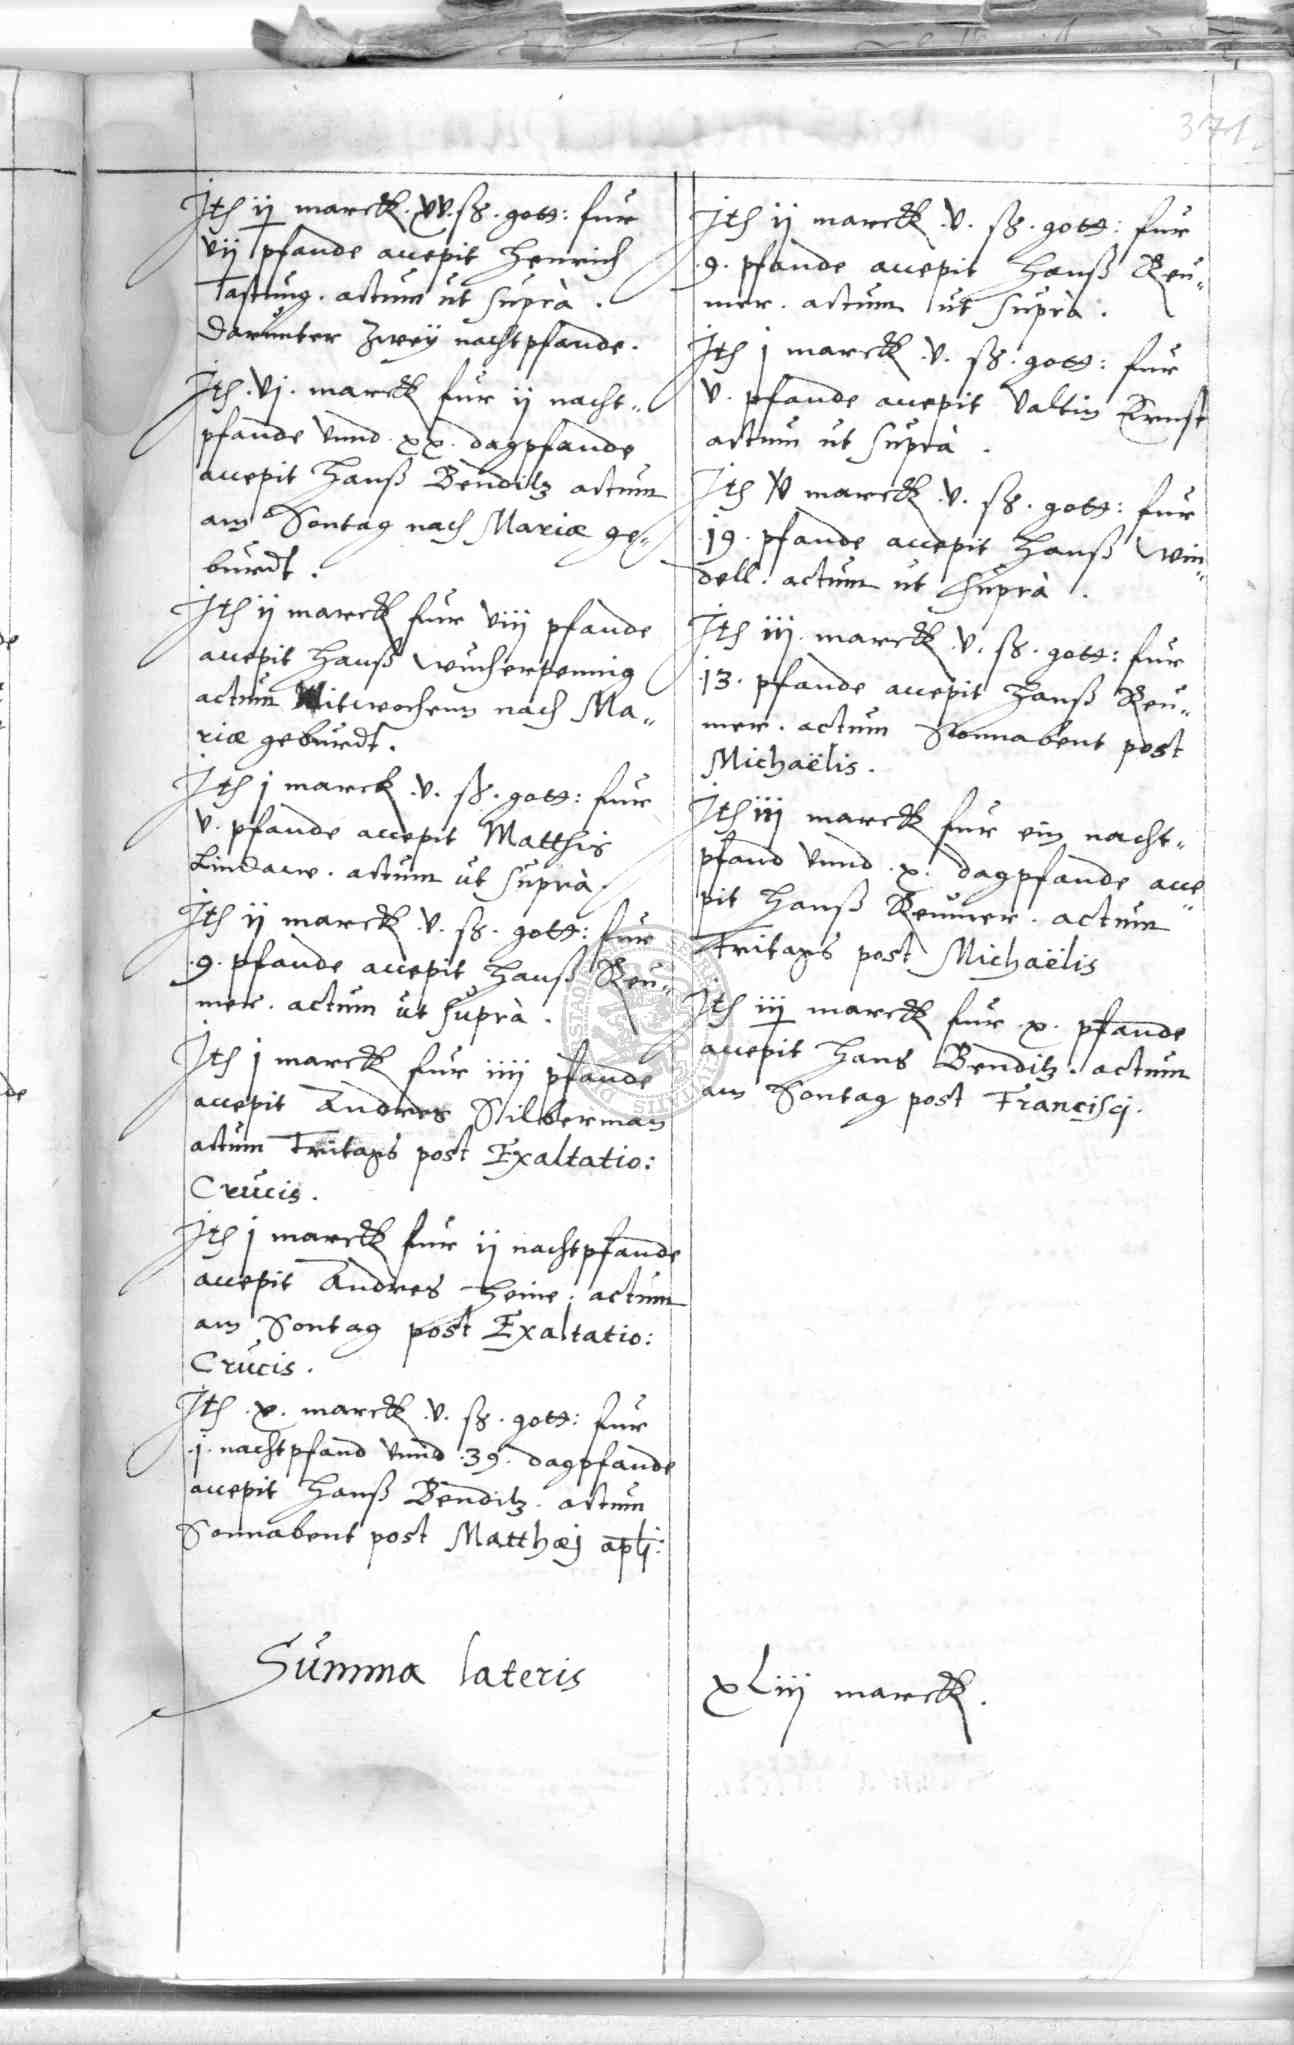 371.
Ité ij marck. v. sß. gott: fur
vij pfande accepit Henrich
Tastung. actum ut suprà.
darunter zweÿ nachtpfande.
Ité. vj. marck fur ij nacht-
pfande vnnd. xx. dagpfande
accepit Hanß Benditz actum
am Sontag nach Mariæ ge-
burdt.
Ité ij marck fur viij pfande
accepit Hanß Wucherpennig
actum Mitwochenn nach Ma-
riæ geburdt.
Ité j marck. v. sß. gott: fur
v. pfande accepit Matthis
Lindauw. actum ut suprà.
Ité ij marck. v. sß. gott: fur
.9. pfande accepit Hanß Reu-
mer. actum ut suprà.
Ité j marck fur iiij pfande
accepit Andres Silberman
actum Fritags post Exaltatio:
Crucis.
Ité j marck fur ij nachtpfande
accepit Andres Heine. actum
am Sontag post Exaltatio:
Crucis.
Ité. x. marck. v. sß. gott: fur
.j. nachtpfand vnnd. 39. dagpfande
accepit Hanß Benditz. actum
Sonnabent post Matthæj aplj:
Ité ij marck. v. sß. gott: fur
.9. pfande accepit Hanß Reu-
mer. actum ut suprà.
Ité j marck. v. sß. gott: fur
v. pfande accepit Valtin Ernst
actum ut suprà.
Ité marck. v. sß. gott: fur
.19. pfande accepit Hanß Win-
dell. actum ut suprà.
Ité iij. marck. v. sß. gott: fur
.13. pfande accepit Hanß Reu-
mer. actum Sonnabent post
Michaëlis.
Ité iij marck fur ein nacht-
pfand vnnd. x. dagpfande acce-
pit Hanß Reumer. actum
Fritags post Michaëlis
Ité iij marck fur. x. pfande
accepit Hans Benditz. actum
am Sontag post Francisci.
Summa lateris
xLiij marck.